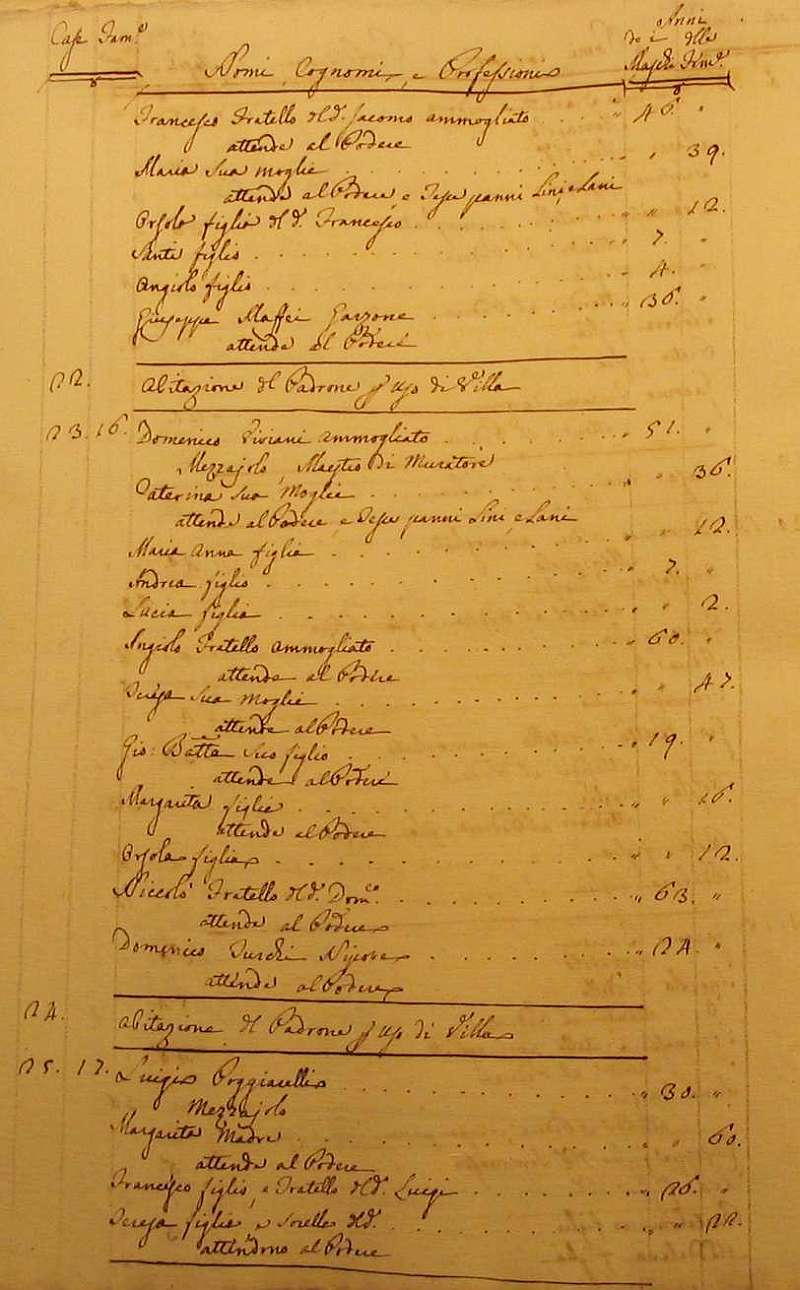 Anni
Case Fam.e de i delle
Nomi, Cognomi, e Professioni Maschi Fem.e
Francesco Fratello del d.o Jacomo ammogliato 46. "
attende al Podere
Maria sua moglie " 39.
attende al Podere, e Tesse panni Lini, e Lani
Orsola figlia del d.o Francesco " " 12.
Santi figlio 7. "
Angiolo figlio 4. "
Giuseppe Maffei Garzone " 36. "
attende al Podere
22. Abitazione del Padrone p uso di Villa
23. 16. Domenico Viviani ammogliato " 51. "
Mezzajolo, Mastro di Muratore
Caterina sua Moglie " " 36.
attende al Podere, e Tesse panni Lini, e Lani
Maria Anna figlia " " 12.
Andrea figlio 7. "
Lucia figlia " " 2.
Angiolo Fratello ammogliato " 60. "
attende al Podere
Teresa sua Moglie " " 47.
attende al Podere
Gio: Batta suo figlio " 19. "
attende al Podere
Margarita figlia " " 16.
attende al Podere
Orsola figlia " " 12.
Niccolò Fratello del d.o Dom.co " 63. "
attende al Podere
Domenico Turchi Nipote " 24. "
attende al Podere
24. Abitazione del Padrone p uso di Villa
25. 17. Luigi Poggiarelli " 30. "
Mezzajolo
Margarita Madre " " 60.
attende al Podere
Francesco figlio, e Fratello del d.o Luigi " 26. "
Teresa figlia e sorella del d.o " " 22.
attendono al Podere